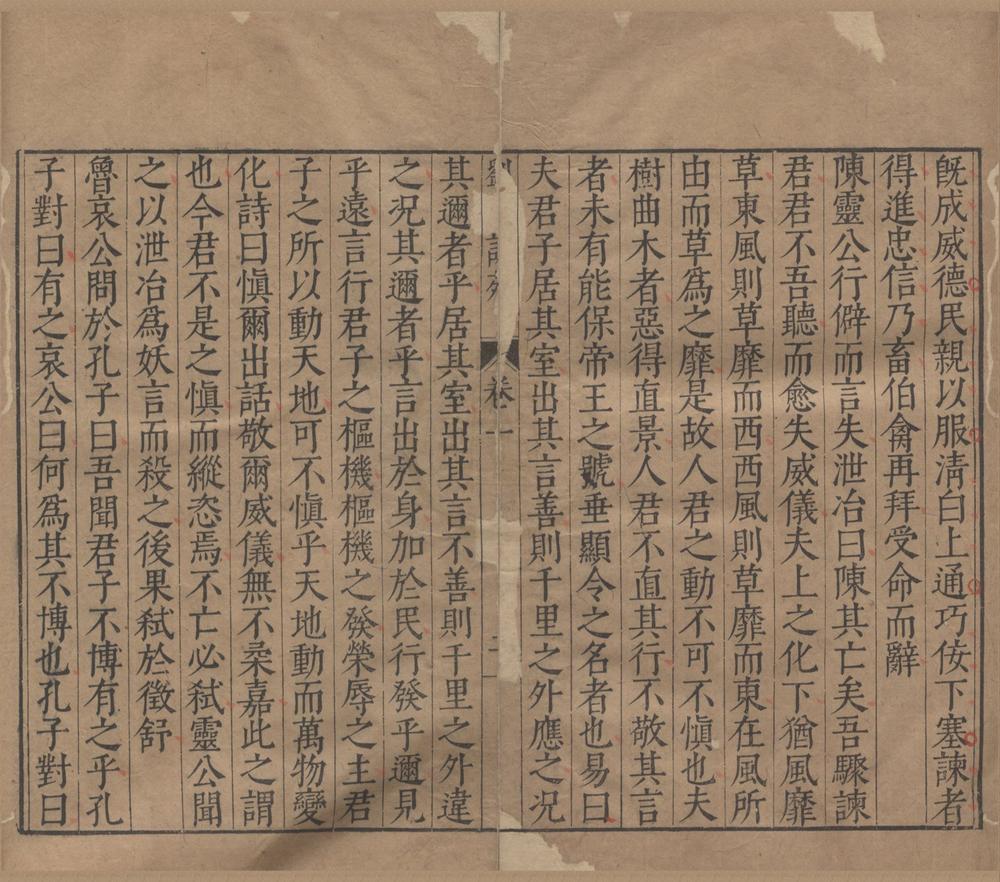 旣成威德民親以服淸白上通巧佞下塞諫者
得進忠信乃畜伯禽再拜受命而辭
陳靈公行僻而言失泄冶曰陳其亡矣吾驟諫
君君不吾聽而愈失威儀夫上之化下猶風靡
草東風則草靡而西西風則草靡而東在風所
由而草爲之靡是故人君之動不可不愼也夫
樹曲木者惡得直景人君不直其行不敬其言
者未有能保帝王之號垂顯令之名者也易曰
夫君子居其室出其言善則千里之外應之况
卷一
其邇者乎居其室出其言不善則千里之外違
之况其邇者乎言出於身加於民行發乎邇見
乎遠言行君子之樞機樞機之發榮辱之主君
子之所以動天地可不愼乎天地動而萬物變
化詩曰愼爾出話敬爾威儀無不柔嘉此之謂
也今君不是之愼而縱恣焉不亡必弑靈公聞
之以泄冶爲妖言而殺之後果弑於徵舒
魯哀公問於孔子曰吾聞君子不博有之乎孔
子對曰有之哀公曰何爲其不博也孔子對曰